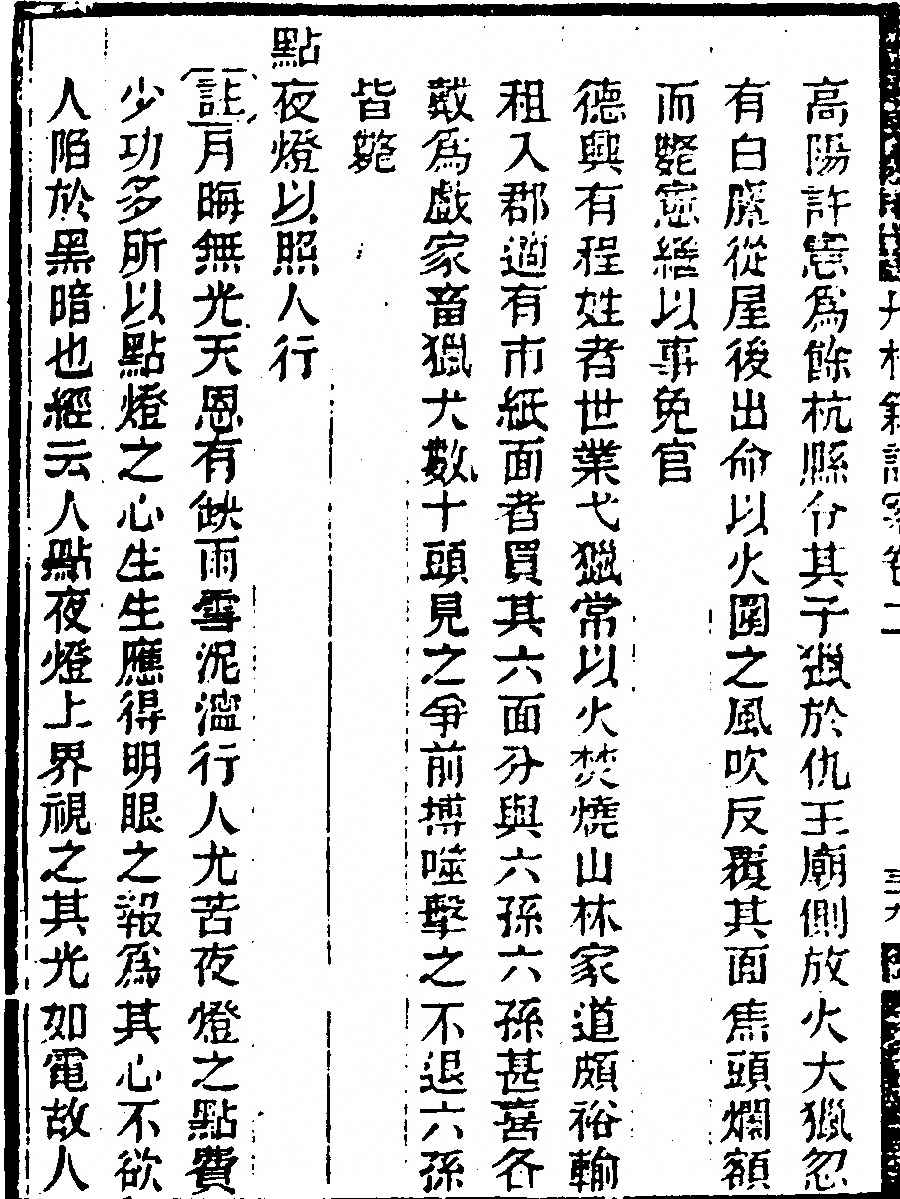 高陽許憲爲餘杭縣令其子獵於仇王廟側放火大獵忽
有白麞從屋後出命以火圍之風吹反覆其面焦頭爛額
而斃憲繼以事免官
德興有程姓者世業弋獵常以火焚燒山林家道頗裕輸
租入郡適有市紙面者買其六面分與六孫六孫甚喜各
戴爲戲家畜獵犬數十頭見之爭前搏噬擊之不退六孫
皆斃
點夜燈以照人行
註月晦無光天恩有缺雨雪泥濘行人尤苦夜燈之點費
少功多所以點燈之心生生應得明眼之報爲其心不欲
人陷於黑暗也經云人點夜燈上界視之其光如電故人